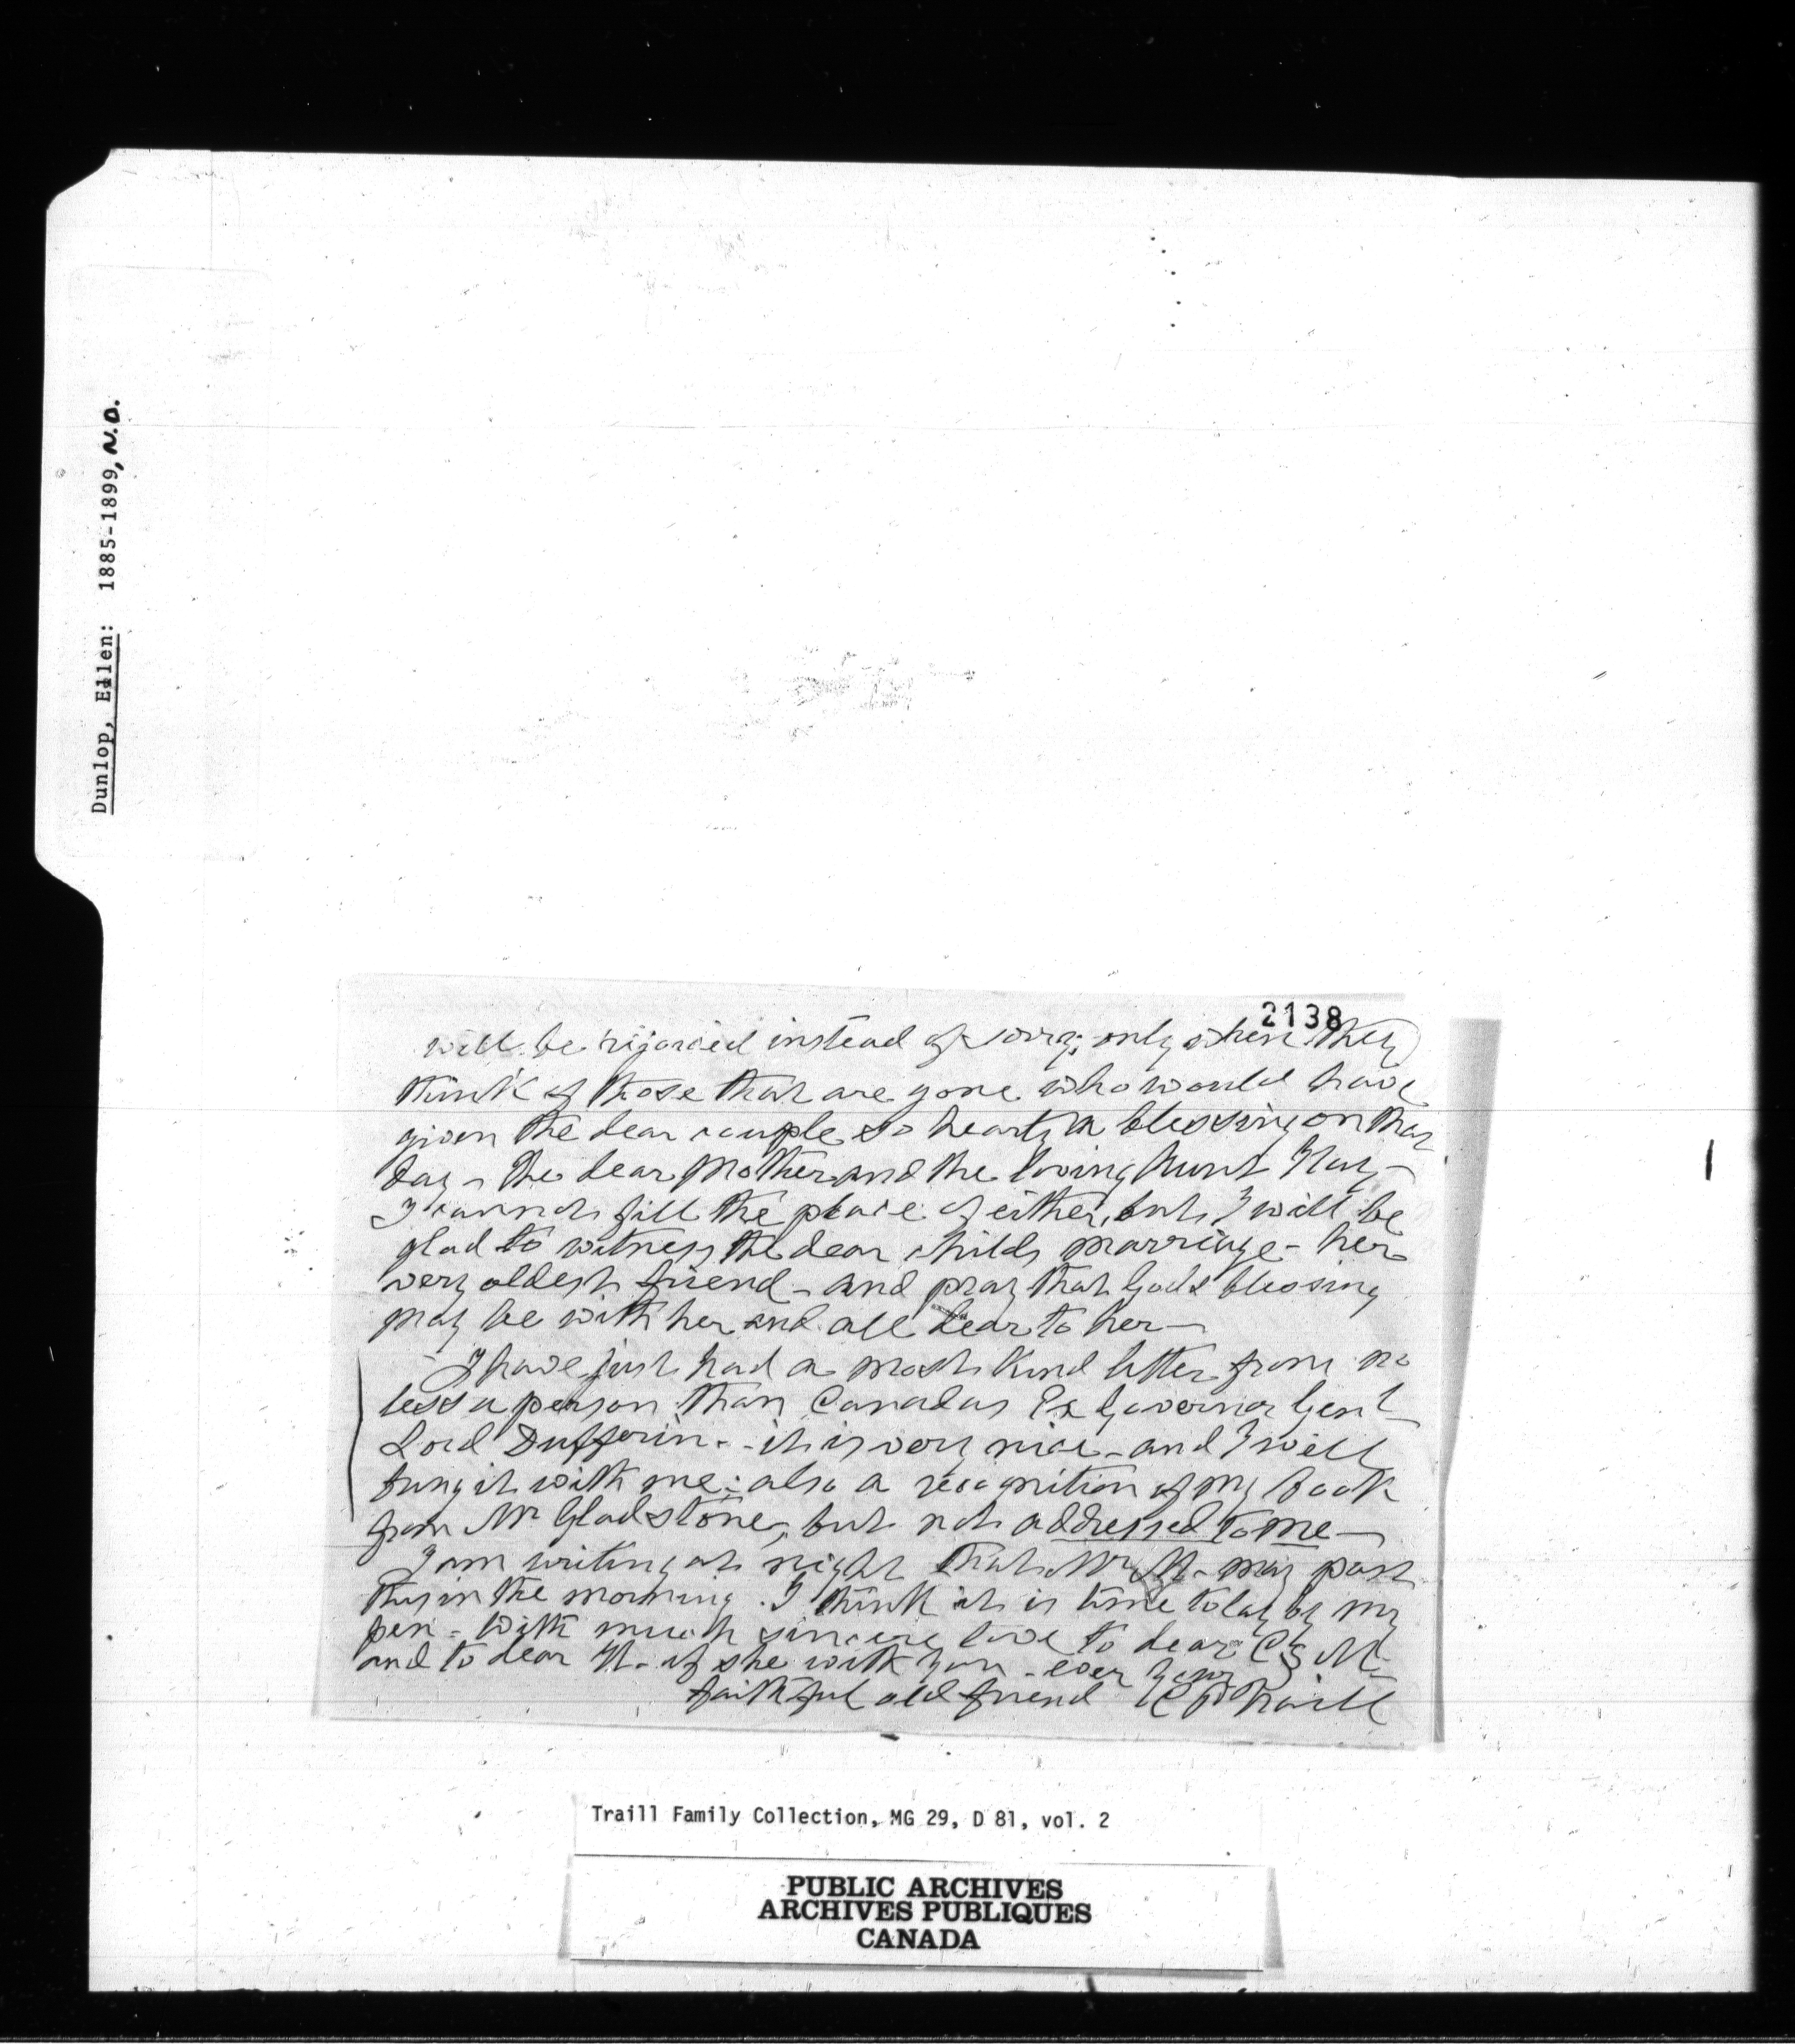 Dunlop, Ellen: 1885-1899, N.D.
2138
will be rejoiced instead of sorry; only when they
think of those that are gone who would have
given the dear couple so hearty a blessing on that
day - the dear Mother and the loving Aunt
I cannot fill the place of either, but I will be
glad to witness the dear childs marriage - her
very oldest friend - and pray that Gods blessing
may be with her and all dear to her -
I have just had a most kind letter from no
less a person than Canadas Ex Governor Genl
Lord Dufferin - it is very nice - and I will
bring it with me: also a recognition of my book
from Mr Gladstone, but not addressed to me -
I am writing at night that Mr M. may post
this in the morning. I think it is time to lay by my
pen - With much sincere love to dear C S M
and to dear if she with you - ever your
faithful old friend C P Traill
Traill Family Collection, MG 29, D 81, vol. 2
PUBLIC ARCHIVES
ARCHIVES PUBLIQUES
CANADA